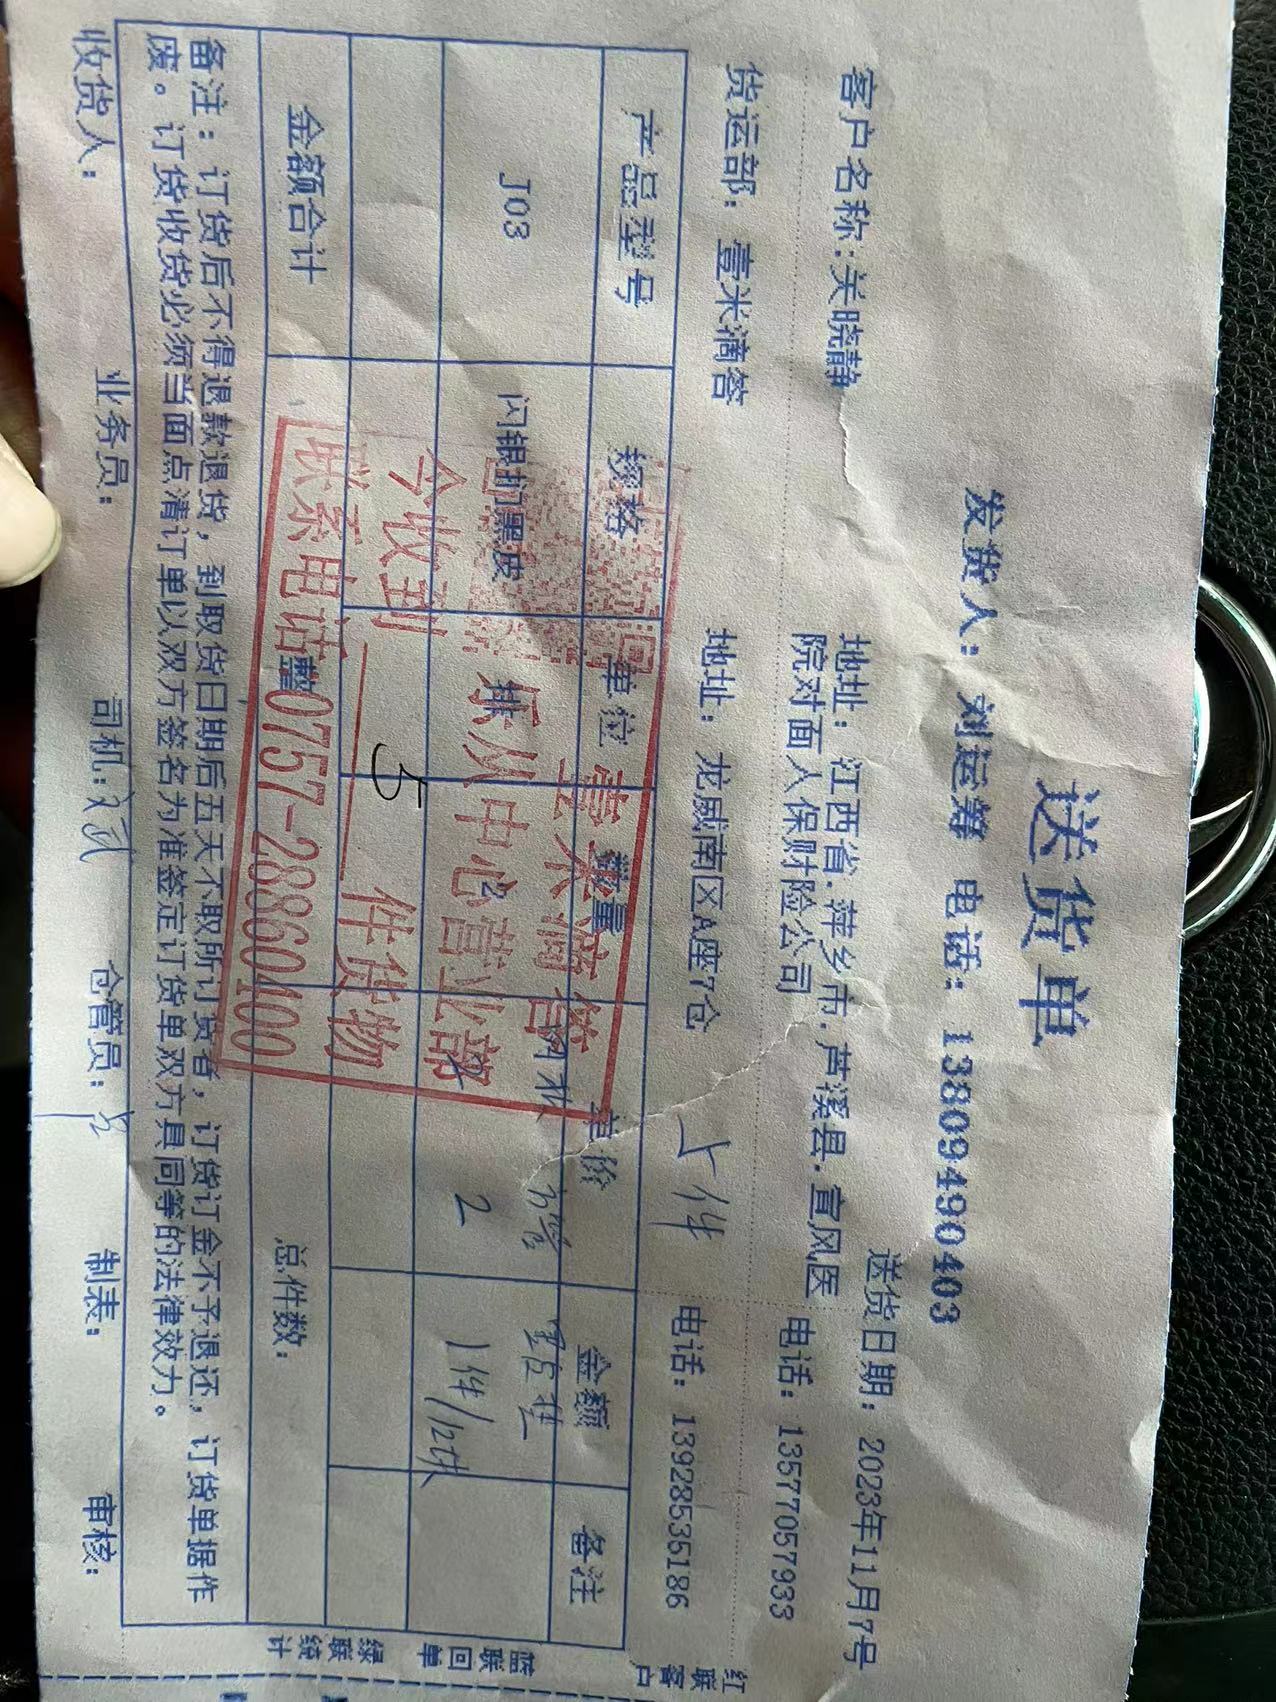 送货单
发货人：刘运筹 电话：13809490403
送货日期：2023年11月7号
客户名称：关晓静 地址：江西省.萍乡市.芦溪县.宣风医院对面人保财险公司 电话：13577057933
货运部：壹米滴答 地址：龙威南区A座7仓 电话：13928535186
5件
产品型号 规格 单位 数量 单价 金额 备注
J03 闪银扪黑皮 排 2 2 1件/2块
金额合计 整 总件数：
壹米滴答
乐从中心营业部
今收到 5 件货物
联系电话0757-28860400
备注：订货后不得退款退货，到取货日期后五天不取所订货者，订货订金不予退还，订货单据作
废。订货收货必须当面点清订单以双方签名为准签定订货单双方具同等的法律效力。
收货人： 业务员： 司机： 仓管员： 制表： 审核：
红联客户 蓝联回单 绿联统计